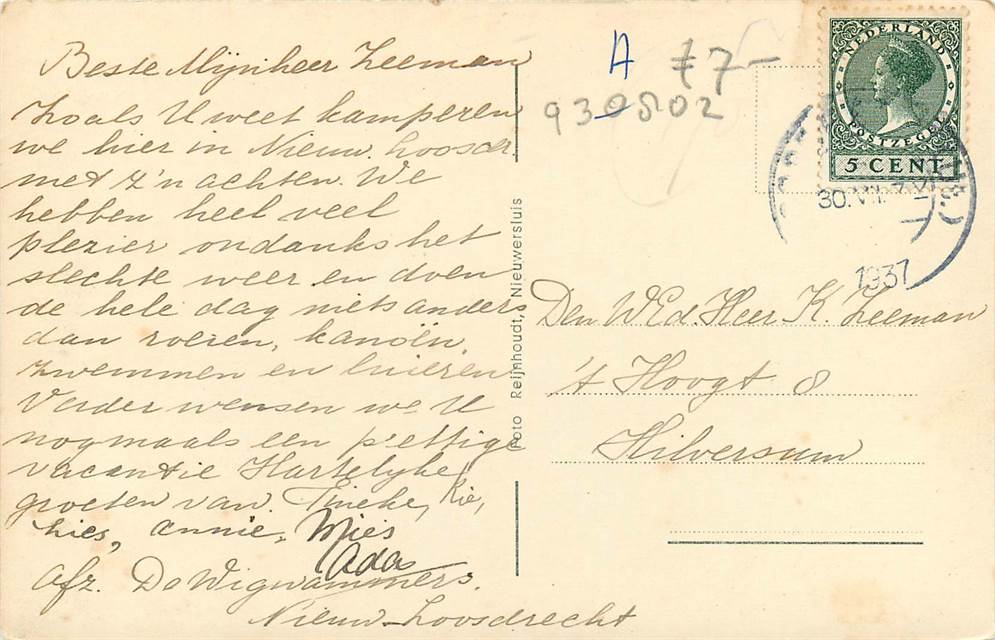 Beste Mijnheer Zeeman
Zoals U weet kamperen
we hier in Nieuw. Loosdr.
met z'n achten. We
hebben heel veel
plezier ondanks het
slechte weer en doen
de hele dag niets anders
dan roeien, kanoën,
zwemmen en luieren
Verder wensen we U
nogmaals een prettige
vacantie Hartelyke
groeten van. Tineke, Rie,
Lies, Annie, Mies
Ada
Afz. De Wigwammers.
Nieuw-Loosdrecht
Foto Reijnhoudt, Nieuwersluis
A
£7-
930502
NEDERLAND
POSTZEGEL
5 CENT
30.VII
1937
Den WEd. Heer K. Zeeman
't Hoogt 8
Hilversum